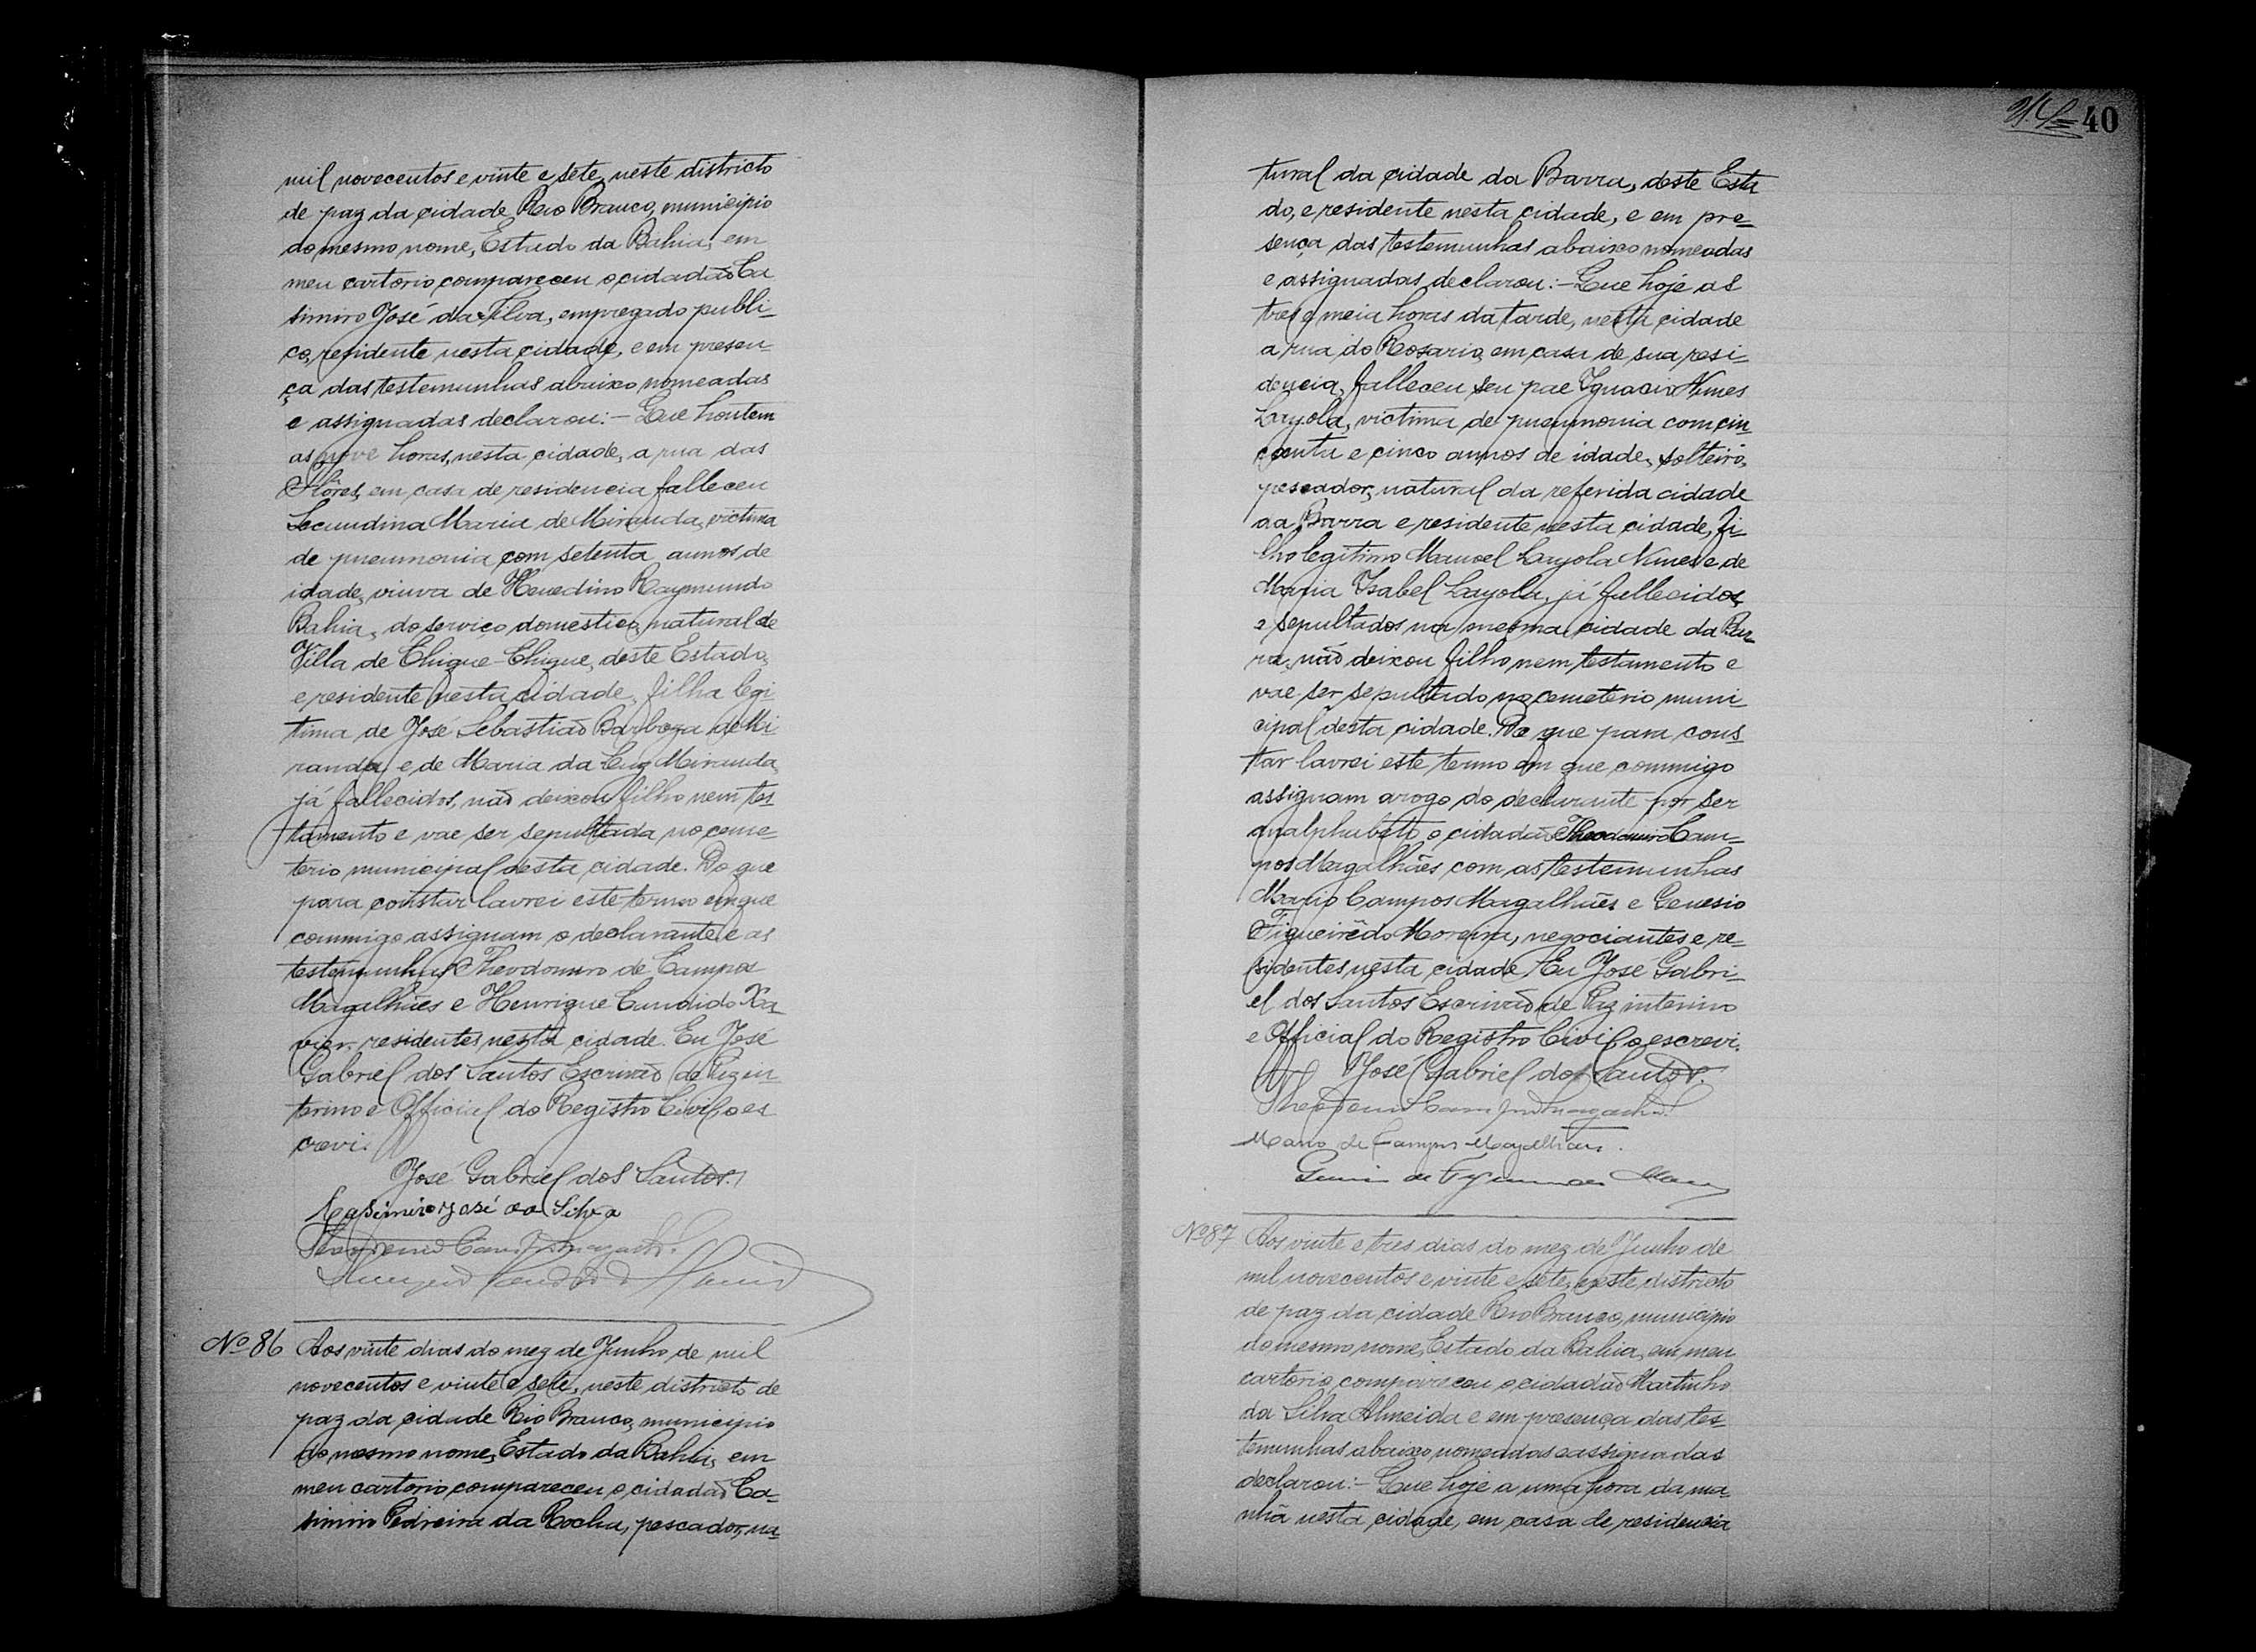 mil novecentos e vinte e sete, neste districto
de paz da cidade Rio Branco, municipio
do mesmo nome, Estado da Bahia, em
meu cartorio compareceu o cidadão Ca
simiro José da Silva, empregado publi-
co, residente nesta cidade, e em presen-
ça das testemunhas abaixo nomeadas
e assignadas declarou:- Que hontem
as nove horas, nesta cidade, a rua das
Flôres, em casa de residencia falleceu
Secundina Maria de Miranda, victima
de pneumonia, com setenta annos de
idade, viuva de Henedino Raymundo
Bahia, do serviço domestico, natural de
Villa de Chique-Chique, deste Estado,
e residente nesta cidade, filha legi
tima de José Sebastião Barboza de Mi-
randa, e de Maria da Cruz Miranda,
já fallecidos, não deixou filho nem tes-
tamento e vae ser sepultada no ceme-
terio municipal desta cidade. Do que
para constar lavrei este termo em que
commigo assignam o declarante e as
testemunhas Theodomiro de Campos
Magalhães e Henrique Candido Xa-
vier, residentes nesta cidade. Eu José
Gabriel dos Santos Escrivão de Paz in-
terino e Official do Registro Civil o es
crevi.
José Gabriel dos Santos.
Casimiro José da Silva
Nº 86 Aos vinte dias do mez de Junho de mil
novecentos e vinte e sete, neste districto de
paz da cidade Rio Branco, municipio
do mesmo nome, Estado da Bahia, em
meu cartorio compareceu o cidadão Ca-
simiro Pedreira da Rocha, pescador, na-
40
tural da cidade da Barra, deste Esta
do, e residente nesta cidade, e em pre-
sença das testemunhas abaixo nomeadas
e assignadas declarou:- Que hoje as
tres e meia horas da tarde, nesta cidade
a rua do Rosario, em casa de sua resi-
dencia, falleceu seu pae Ignacio Nunes
Layola, victima de pneumonia com cin
coenta e cinco annos de idade, solteiro,
pescador, natural da referida cidade
da Barra e residente nesta cidade, fi-
lho legitimo Manoel Layola Nunes e de
Maria Isabel Layola, já fallecidos
e sepultados na mesma cidade da Bar
ra, não deixou filho nem testamento e
vae ser sepultado no cemeterio muni-
cipal desta cidade. Do que para cons-
tar lavrei este termo em que commigo
assignam arogo do declarante por ser
analphabeto o cidadão Theodomiro Cam-
pos Magalhães com as testemunhas
Mario Campos Magalhães e Genesio
Figueirêdo Moreira, negociantes e re-
sidentes nesta cidade. Eu José Gabri-
el dos Santos Escrivão de Paz interino
e Official do Registro Civil o escrevi.
José Gabriel dos Santos.
Mario de Campos Magalhães.
Nº 87 Aos vinte e tres dias do mez de Junho de
mil novecentos e vinte e sete, neste districto
de paz da cidade Rio Branco, municipio
do mesmo nome, Estado da Bahia, em meu
cartorio, compareceu o cidadão Martinho
da Silva Almeida e em presença das tes-
temunhas abaixo nomeadas e assignadas
declarou:- Que hoje a uma hora da ma-
nhã nesta cidade, em casa de residencia